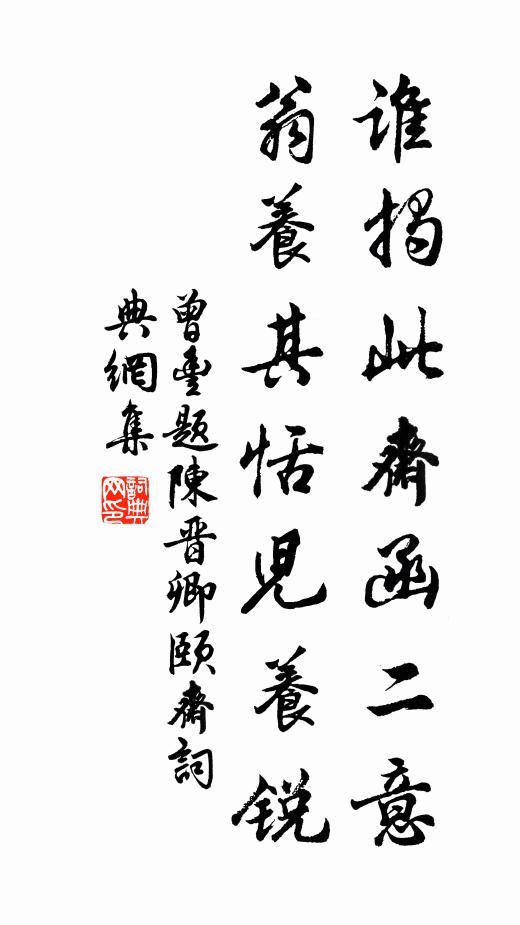 誰揭此齋函二意
翁養其恬兒養銳
曾豐題陳晋卿頤齋詞
典網集
詞典網印